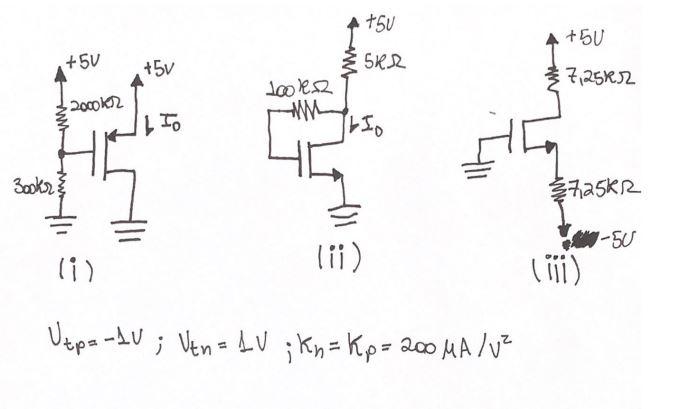 +5V
+5V
2000kΩ
I₀
300kΩ
(i)
+5V
5kΩ
100kΩ
I₀
(ii)
+5V
7,25kΩ
7,25kΩ
-5V
(iii)
Vtp = -1V ; Vtn = 1V ; Kn = Kp = 200 μA/V²